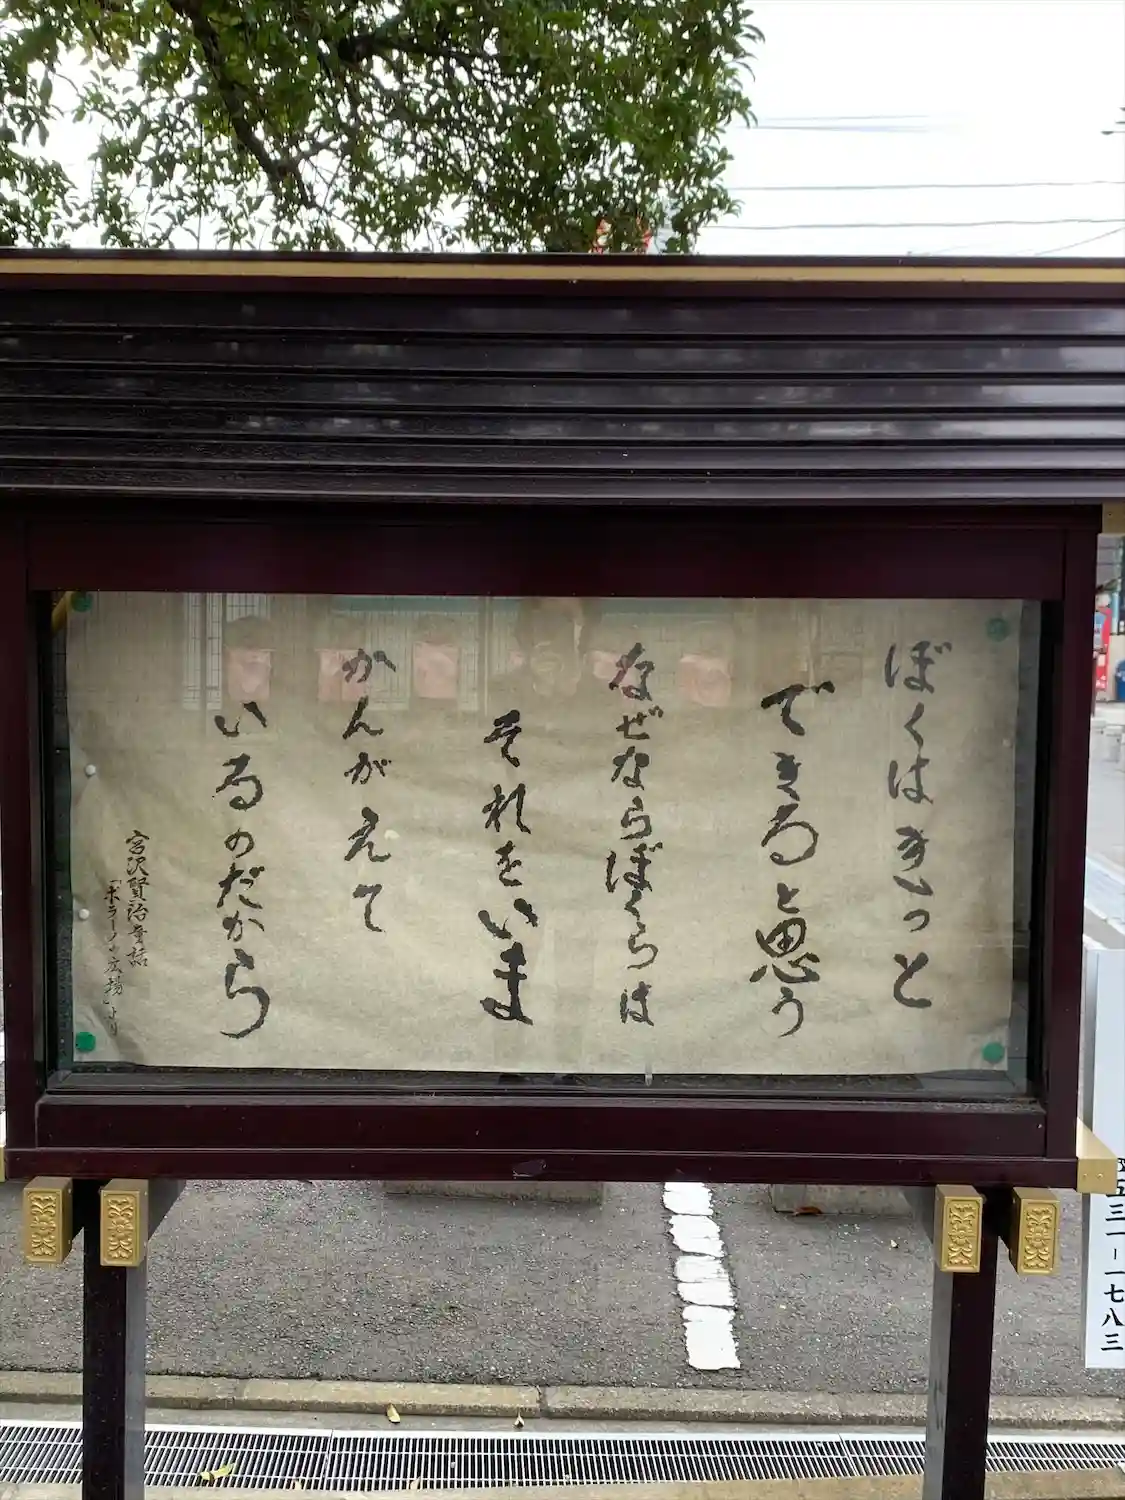 ぼくはきっと
できると思う
なぜならぼくらは
それをいま
かんがえて
いるのだから
宮沢賢治童話
「ポラーノの広場」より
五三一-一七八三